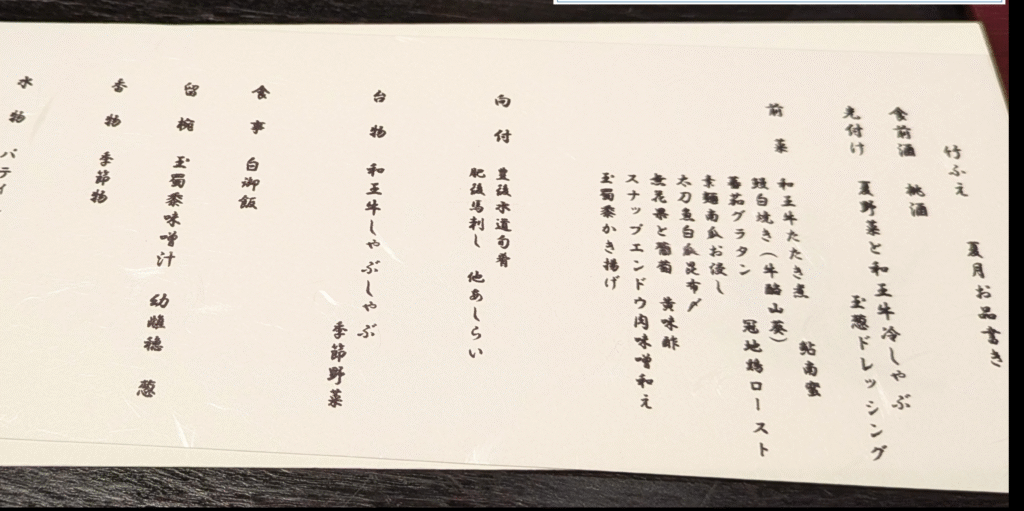 竹ふえ　夏月お品書き
食前酒　桃酒
先付け　夏野菜と和王牛冷しゃぶ
玉葱ドレッシング
前菜　和王牛たたき煮　鮎南蛮
鰻白焼き（牛酪山葵）
蕃茄グラタン　冠地鶏ロースト
素麺南瓜お浸し
太刀魚白瓜昆布〆
無花果と葡萄　黄味酢
スナップエンドウ肉味噌和え
玉蜀黍かき揚げ
向付　豊後水道旬肴
肥後馬刺し　他あしらい
台物　和王牛しゃぶしゃぶ
季節野菜
食事　白御飯
留椀　玉蜀黍味噌汁　幼雌穂　葱
香物　季節物
水物　パティ